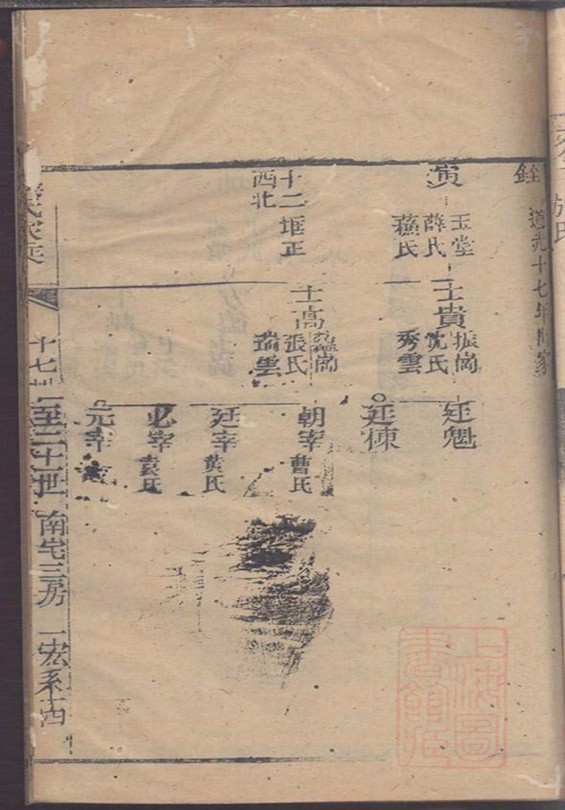 銓
道光十七年
寅
玉堂
薛氏
蘓氏
十二世正
西北
士貴
振崗
沈氏
秀雲
士高
張氏
瑞雲
廷魁
廷棟
朝宰
曹氏
廷宰
黄氏
必宰
袁氏
元宰
十七世至二十一世
南宅三房
一宏系
上海圖書館藏